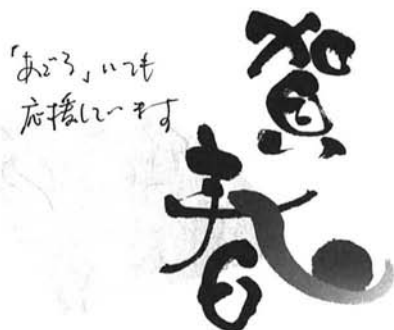 賀春
「あごら」いつも
応援しています